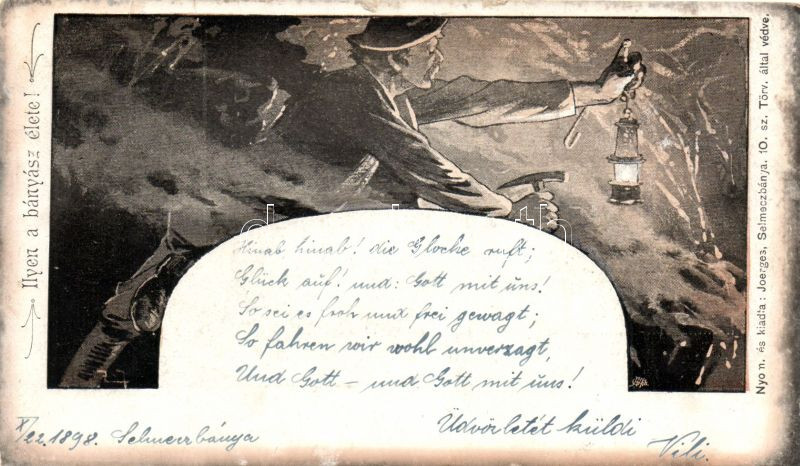 Ilyen a bányász élete!
Hinab hinab! die Glocke ruft;
Glück auf! und: Gott mit uns!
So sei es froh und frei gewagt;
So fahren wir wohl unverzagt,
Und Gott – und Gott mit uns!
X/22. 1898. Selmeczbánya
Üdvözletét küldi
Vili.
Nyom. és kiadta: Joerges, Selmeczbánya. 10. sz. Törv. által védve.